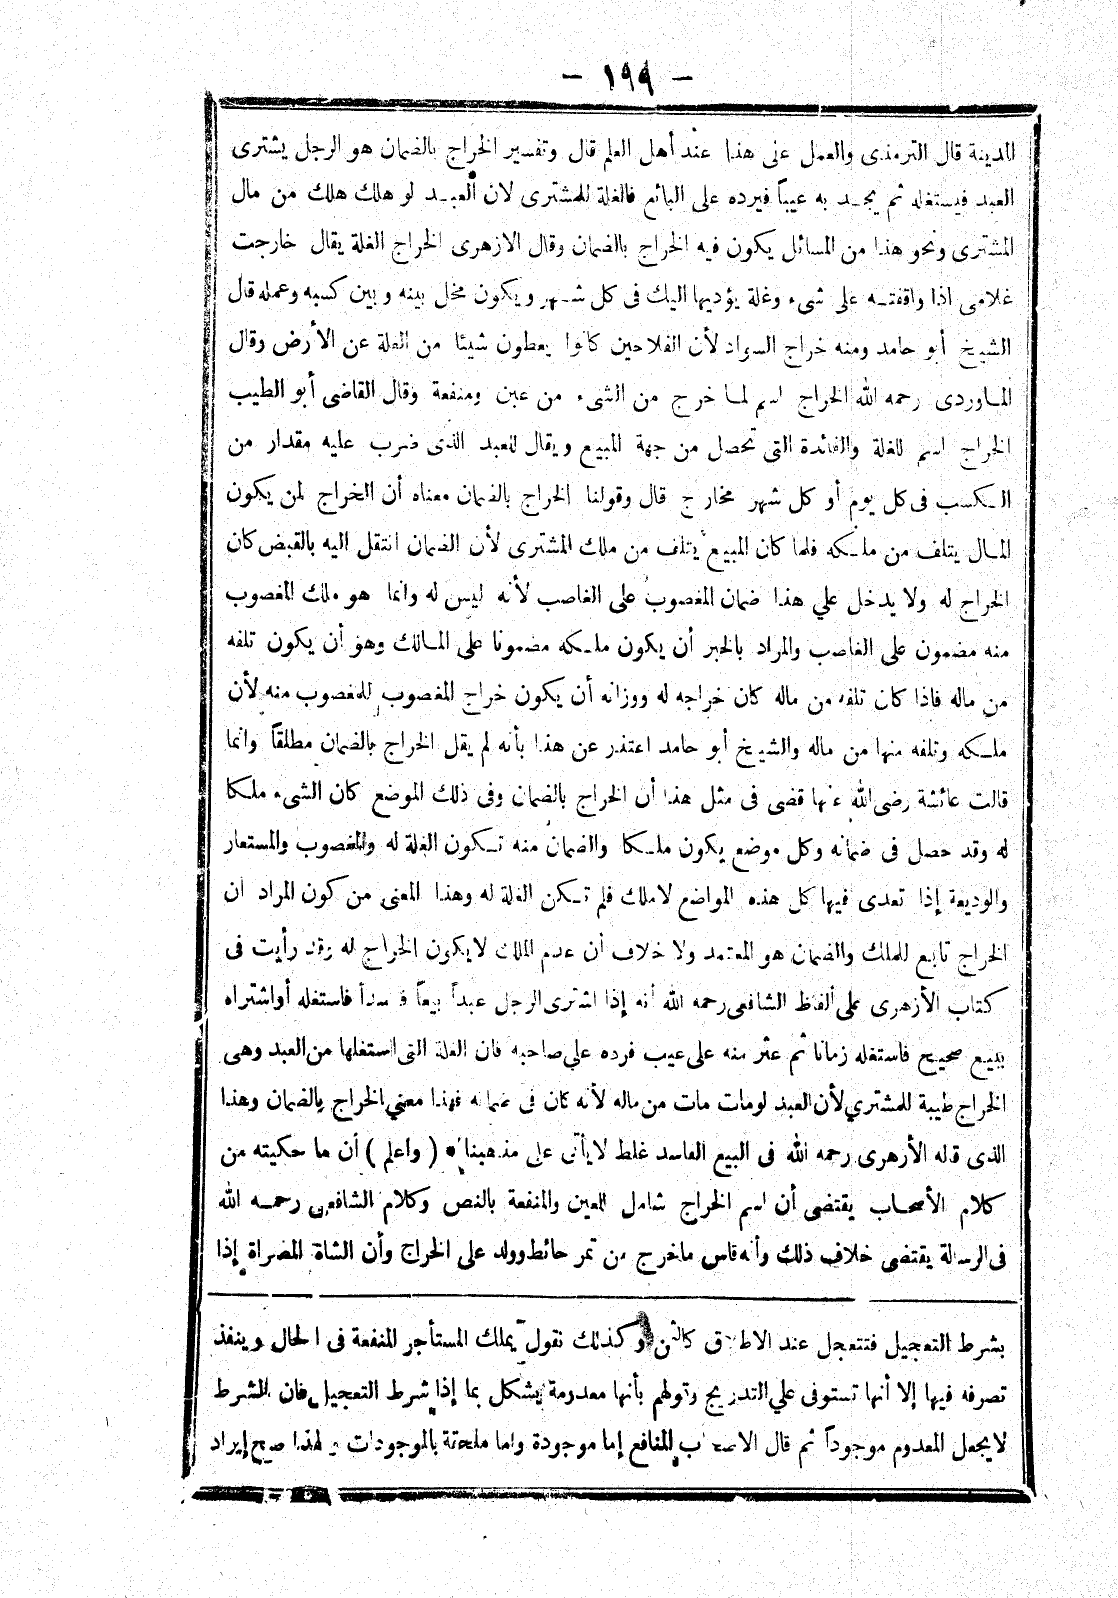 — ١٩٩ —
المدينة قال الترمذى والعمل على هذا عند أهل العلم قال وتفسير الخراج بالضمان هو الرجل يشترى
العبد فيستغله ثم يجد به عيباً فيرده على البائع فالغلة للمشترى لان العبد لو هلك هلك من مال
المشترى ونحو هذا من المسائل يكون فيه الخراج بالضمان وقال الازهرى الخراج الغلة يقال خارجت
غلامى اذا واقفته على شىء وغلة يؤديها اليك فى كل شهر ويكون مخلى بينه وبين كسبه وعمله قال
الشيخ أبو حامد ومنه خراج السواد لأن الفلاحين كانوا يعطون شيئا من الغلة عن الأرض وقال
الماوردى رحمه الله الخراج اسم لما خرج من الشىء من عين ومنفعة وقال القاضى أبو الطيب
الخراج اسم للغلة والفائدة التى تحصل من جهة المبيع ويقال للعبد الذى ضرب عليه مقدار من
الكسب فى كل يوم أو كل شهر مخارج قال وقولنا الخراج بالضمان معناه أن الخراج لمن يكون
المال يتلف من ملكه فلما كان المبيع يتلف من ملك المشترى لأن الضمان انتقل اليه بالقبض كان
الخراج له ولا يدخل علي هذا ضمان المغصوب على الغاصب لأنه ليس له وانما هو ملك المغصوب
منه مضمون على الغاصب والمراد بالخبر أن يكون ملكه مضمونا على المالك وهو أن يكون تلفه
من ماله فاذا كان تلفه من ماله كان خراجه له ووزانه أن يكون خراج المغصوب للمغصوب منه لأن
ملكه وتلفه منها من ماله والشيخ أبو حامد اعتذر عن هذا بأنه لم يقل الخراج بالضمان مطلقاً وانما
قالت عائشة رضى الله عنها قضى فى مثل هذا أن الخراج بالضمان وفى ذلك الموضع كان الشىء ملكا
له وقد حصل فى ضمانه وكل موضع يكون ملكا والضمان منه تكون الغلة له والمغصوب والمستعار
والوديعة إذا تعدى فيها كل هذه المواضع لاملك فلم تكن الغلة له وهذا المعنى من كون المراد ان
الخراج تابع للملك والضمان هو المعتمد ولا خلاف أن عدم الملك لايكون الخراج له وقد رأيت فى
كتاب الأزهرى على ألفاظ الشافعى رحمه الله أنه إذا اشترى الرجل عبداً بيعاً فاسدأ فاستغله أواشتراه
ببيع صحيح فاستغله زمانا ثم عثر منه على عيب فرده علي صاحبه فان الغلة التى استغلها من العبد وهى
الخراج طيبة للمشتري لأن العبد لومات مات من ماله لأنه كان فى ضمانه فهذا معني الخراج بالضمان وهذا
الذى قاله الأزهرى رحمه الله فى البيع الفاسد غلط لايأتى على مذهبنا • ( واعلم ) أن ما حكيته من
كلام الأصحاب يقتضى أن اسم الخراج شامل للعين والمنفعة بالنص وكلام الشافعى رحمه الله
فى الرسالة يقتضى خلاف ذلك وأنه قاس ماخرج من تمر حائط وولد على الخراج وأن الشاة المصراة إذا
بشرط التعجيل فتتعجل عند الاطلاق كالثمن وكذلك نقول يملك المستأجر المنفعة فى الحال وينفذ
تصرفه فيها إلا أنها تستوفى علي التدريج وقولهم بأنها معدومة يشكل بما إذا شرط التعجيل فان الشرط
لايجعل المعدوم موجوداً ثم قال الاصحاب المنافع إما موجودة واما ملحقة بالموجودات ولهذا صح إيراد